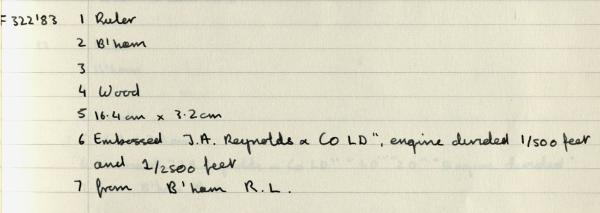 F 322'83 1 Ruler
2 B'ham
3
4 Wood
5 16.4cm x 3.2cm
6 Embossed J.A. Reynolds & CO LD", engine divided 1/500 feet
and 1/2500 feet
7 from B'ham R.L.